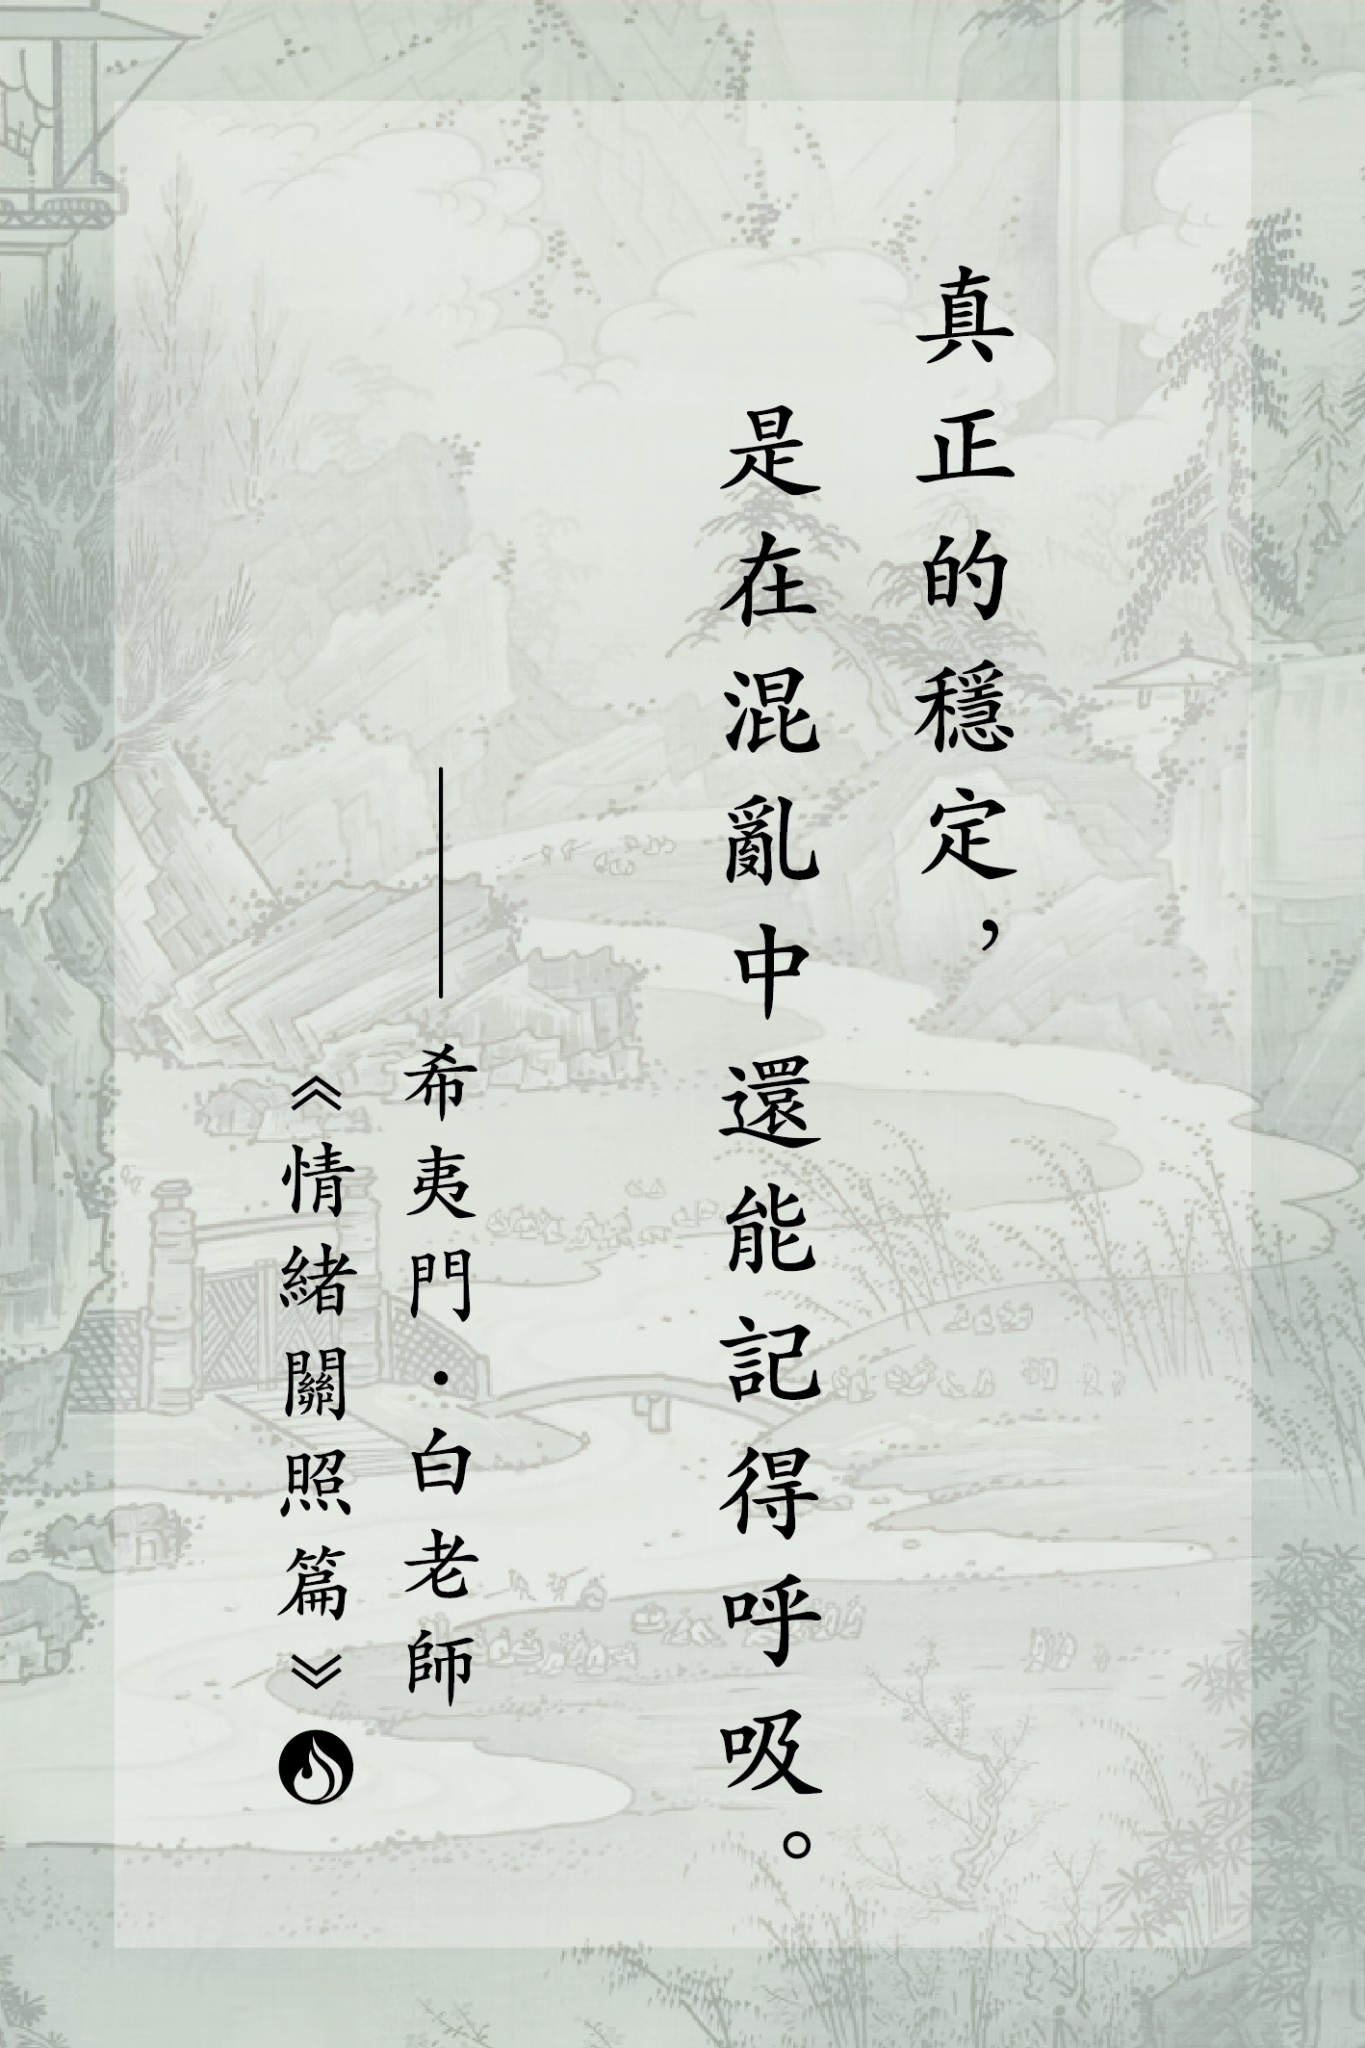 真正的穩定，
是在混亂中還能記得呼吸。
——希夷門．白老師
《情緒關照篇》